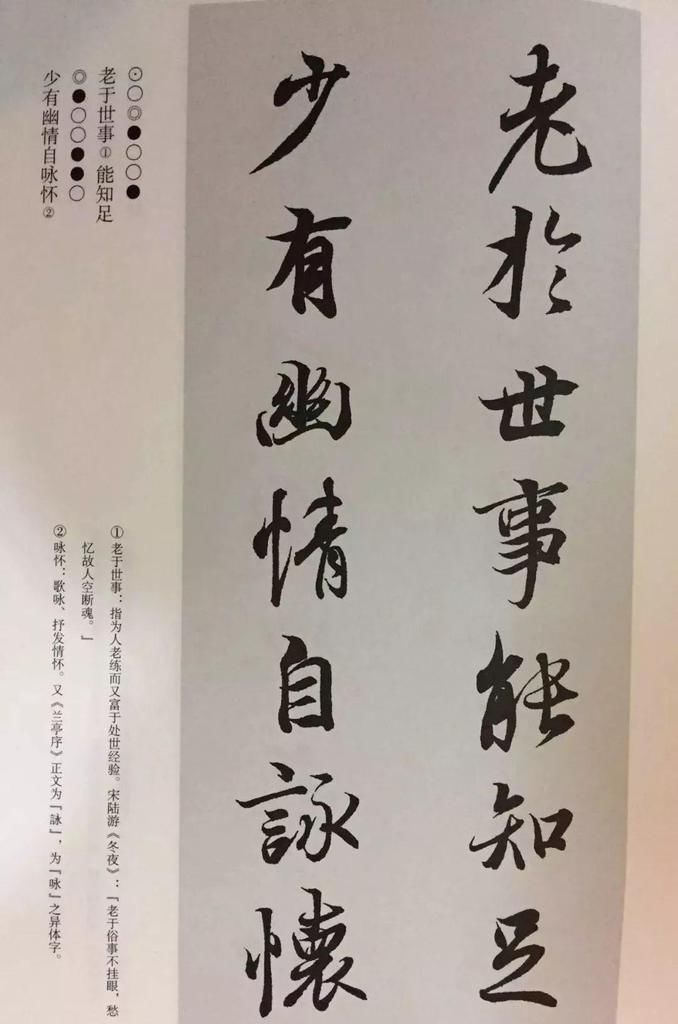 老於世事能知足
少有幽情自詠懷
⊙○◎●○○●
老于世事①能知足
◎●○○●●○
少有幽情自咏怀②
①老于世事：指为人老练而又富于处世经验。宋陆游《冬夜》：「老于俗事不挂眼，愁
忆故人空断魂。」
②咏怀：歌咏、抒发情怀。又《兰亭序》正文为「詠」，为「咏」之异体字。